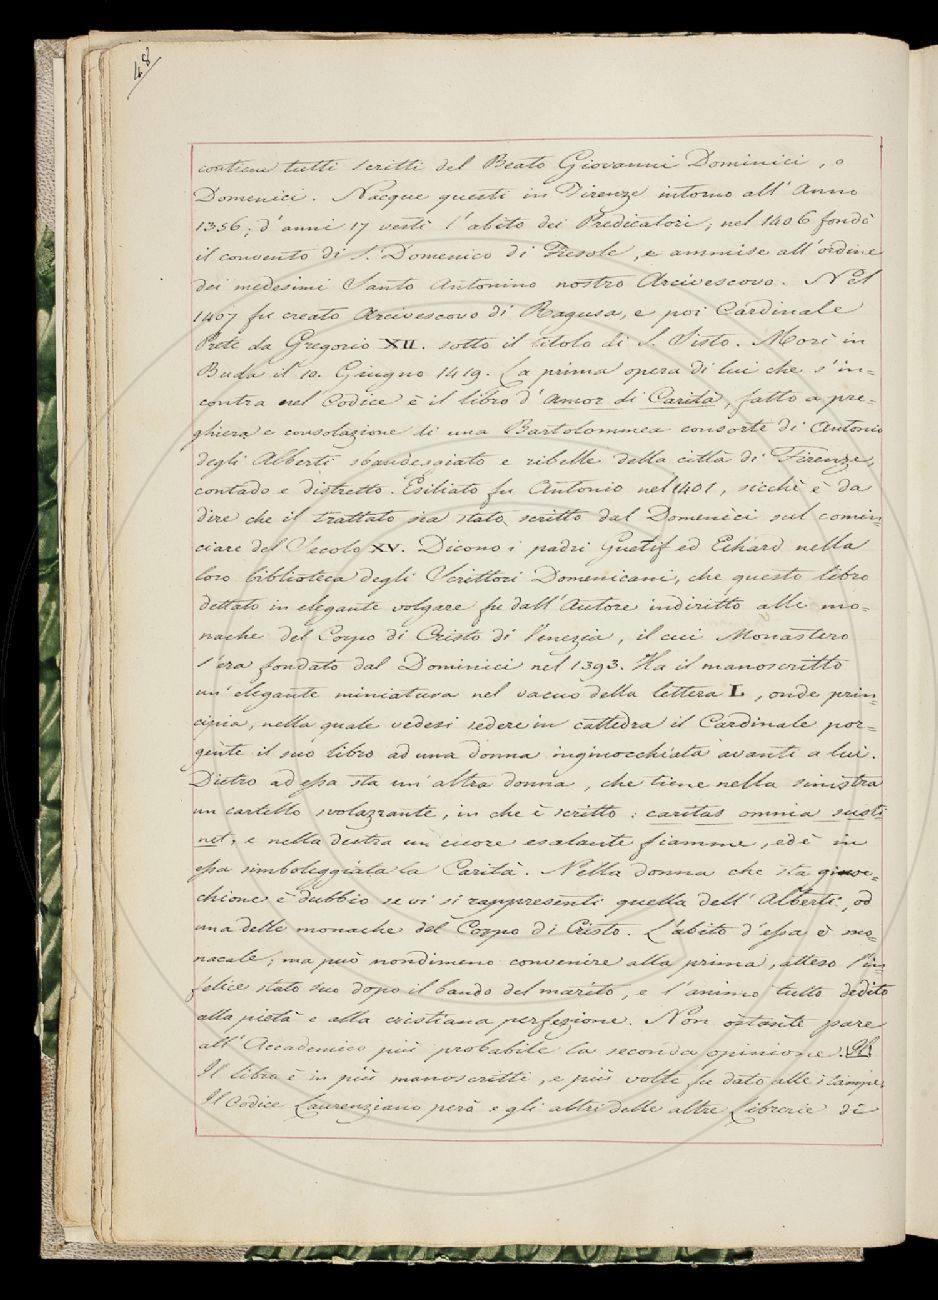 48
contiene tutti scritti del Beato Giovanni Dominici, o
Domenici. Nacque questi in Firenze intorno all' Anno
1356; d' anni 17 vestì l' abito dei Predicatori; nel 1406 fondò
il convento di S. Domenico di Fiesole, e ammise all' ordine
dei medesimi Santo Antonino nostro Arcivescovo. Nel
1407 fu creato Arcivescovo di Ragusa, e poi Cardinale
Prete da Gregorio XII. sotto il titolo di S. Sisto. Morì in
Buda il 10. Giugno 1419. La prima opera di lui che s' in=
contra nel Codice è il libro d' Amor di Carità, fatto a pre=
ghiera e consolazione di una Bartolommea consorte di Antonio
degli Alberti sbandeggiato e ribelle della città di Firenze,
contado e distretto. Esiliato fu Antonio nel 1401, sicchè è da
dire che il trattato sia stato scritto dal Domenici sul comin=
ciare del Secolo XV. Dicono i padri Quetif ed Echard nella
loro biblioteca degli Scrittori Domenicani, che questo libro
dettato in elegante volgare fu dall' Autore indiritto alle mo=
nache del Corpo di Cristo di Venezia, il cui Monastero
s' era fondato dal Dominici nel 1393. Ha il manoscritto
un' elegante miniatura nel vacuo della lettera L, onde prin=
cipia, nella quale vedesi sedere in cattedra il Cardinale por=
gente il suo libro ad una donna inginocchiata avanti a lui.
Dietro ad essa sta un' altra donna, che tiene nella sinistra
un cartello svolazzante, in che è scritto: caritas omnia susti=
net, e nella destra un cuore esalante fiamme, ed è in
essa simboleggiata la Carità. Nella donna che sta ginoc=
chione è dubbio se vi si rappresenti quella dell' Alberti, od
una delle monache del Corpo di Cristo. L' abito d' essa è mo=
nacale; ma può nondimeno convenire alla prima, atteso l' in=
felice stato suo dopo il bando del marito, e l' animo tutto dedito
alla pietà e alla cristiana perfezione. Non ostante pare
all' Accademico più probabile la seconda opinione.
Il libro è in più manoscritti, e più volte fu dato alle stampe.
Il Codice Laurenziano però e gli altri delle altre Librerie di